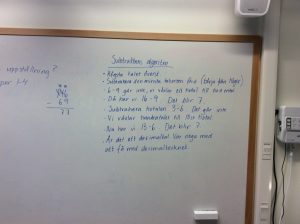 uppställning?
par 1-4
146
- 69
77
Subtraktions algoritm
- Högsta talet överst
- Subtrahera den minsta talsorten först (börja från höger)
- 6-9 går inte, vi växlar ett tiotal till tio ental
- Då har vi 16-9 Det blir 7.
- Subtrahera tiotalen 3-6 Det går inte
- Vi växlar hundratalet till tio tiotal
- Nu har vi 13-6 Det blir 7
- Är det ett decimaltal var noga med
att få med decimaltecknet